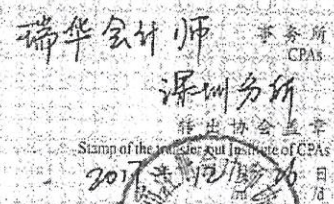 瑞华会计师 事务所
CPAs
深圳分所
转出协会盖章
Stamp of the transfer-out Institute of CPAs
2017 年 12 月 26 日
/d